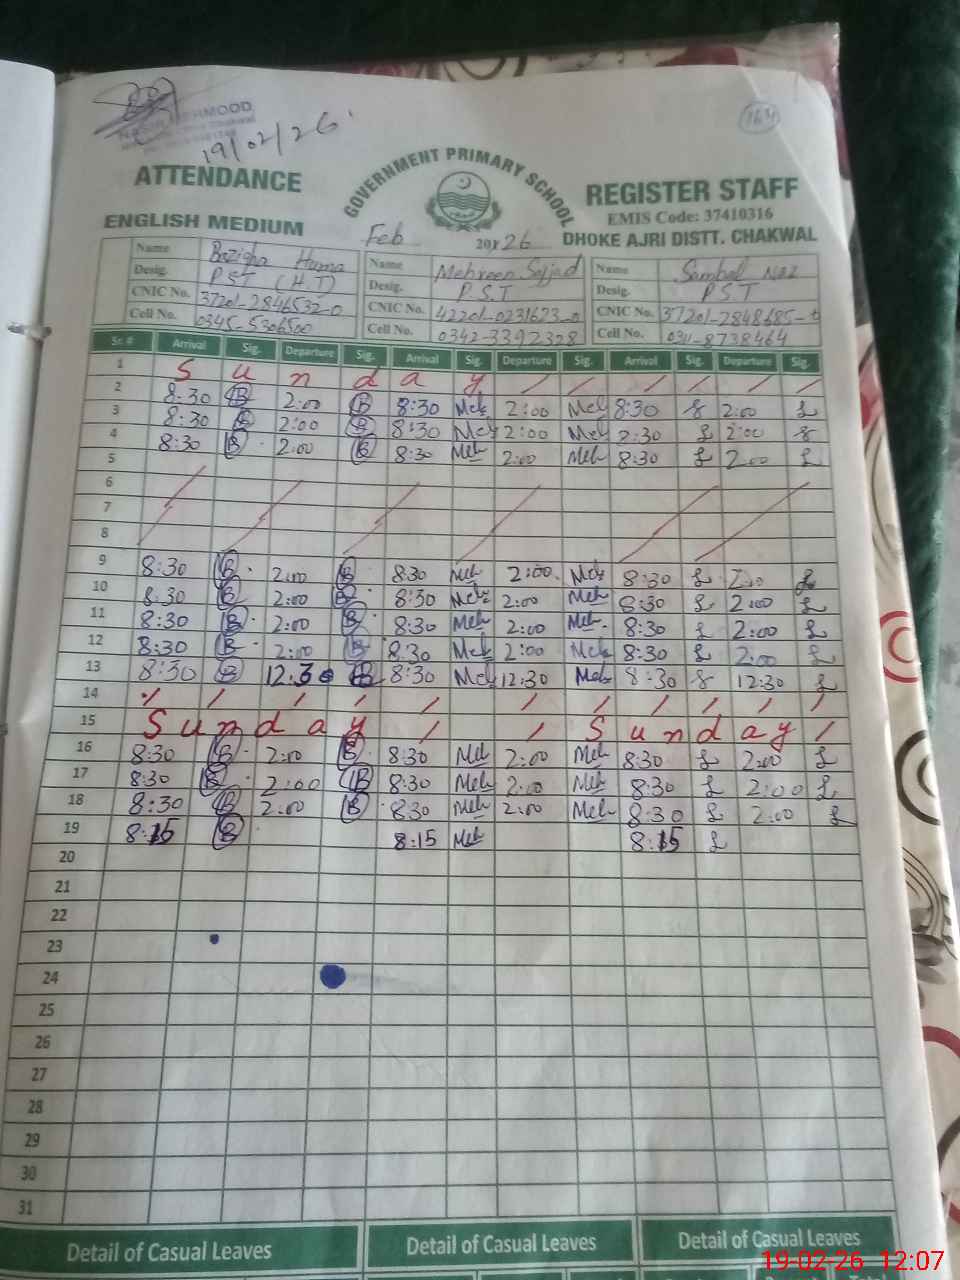 MEHMOOD
19/02/26
164
ATTENDANCE
GOVERNMENT PRIMARY SCHOOL
REGISTER STAFF
EMIS Code: 37410316
ENGLISH MEDIUM
Feb 2026
DHOKE AJRI DISTT. CHAKWAL
Name Bazigha Huma Name Mehreen Sajjad Name Sambal Naz
Desig. PST (H.T) Desig. P.S.T Desig. PST
CNIC No. 37201-2846532-0 CNIC No. 42201-0231673-0 CNIC No. 37201-2848685-
Cell No. 0345-5306500 Cell No. 0342-3392328 Cell No. 0311-8738464
Sr.# Arrival Sig. Departure Sig. Arrival Sig. Departure Sig. Arrival Sig. Departure Sig.
1 S u n d a y / / / / / /
2 8:30 B 2:00 B 8:30 Meh 2:00 Meh 8:30 2:00
3 8:30 B 2:00 B 8:30 Meh 2:00 Meh 2:30 2:00
4 8:30 B 2:00 B 8:30 Meh 2:00 Meh 8:30 2:00
5
6
7
8
9 8:30 B 2:00 B 8:30 Meh 2:00 Meh 8:30 2:00
10 8:30 B 2:00 B 8:30 Meh 2:00 Meh 8:30 2:00
11 8:30 B 2:00 B 8:30 Meh 2:00 Meh 8:30 2:00
12 8:30 B 2:00 B 8:30 Meh 2:00 Meh 8:30 2:00
13 8:30 B 12:30 B 8:30 Meh 12:30 Meh 8:30 12:30
14
15 S u n d a y / / S u n d a y /
16 8:30 B 2:00 B 8:30 Meh 2:00 Meh 8:30 2:00
17 8:30 B 2:00 B 8:30 Meh 2:00 Meh 8:30 2:00
18 8:30 B 2:00 B 8:30 Meh 2:00 Meh 8:30 2:00
19 8:15 B 8:15 Meh 8:15
20
21
22
23
24
25
26
27
28
29
30
31
Detail of Casual Leaves Detail of Casual Leaves Detail of Casual Leaves
19-02-26 12:07